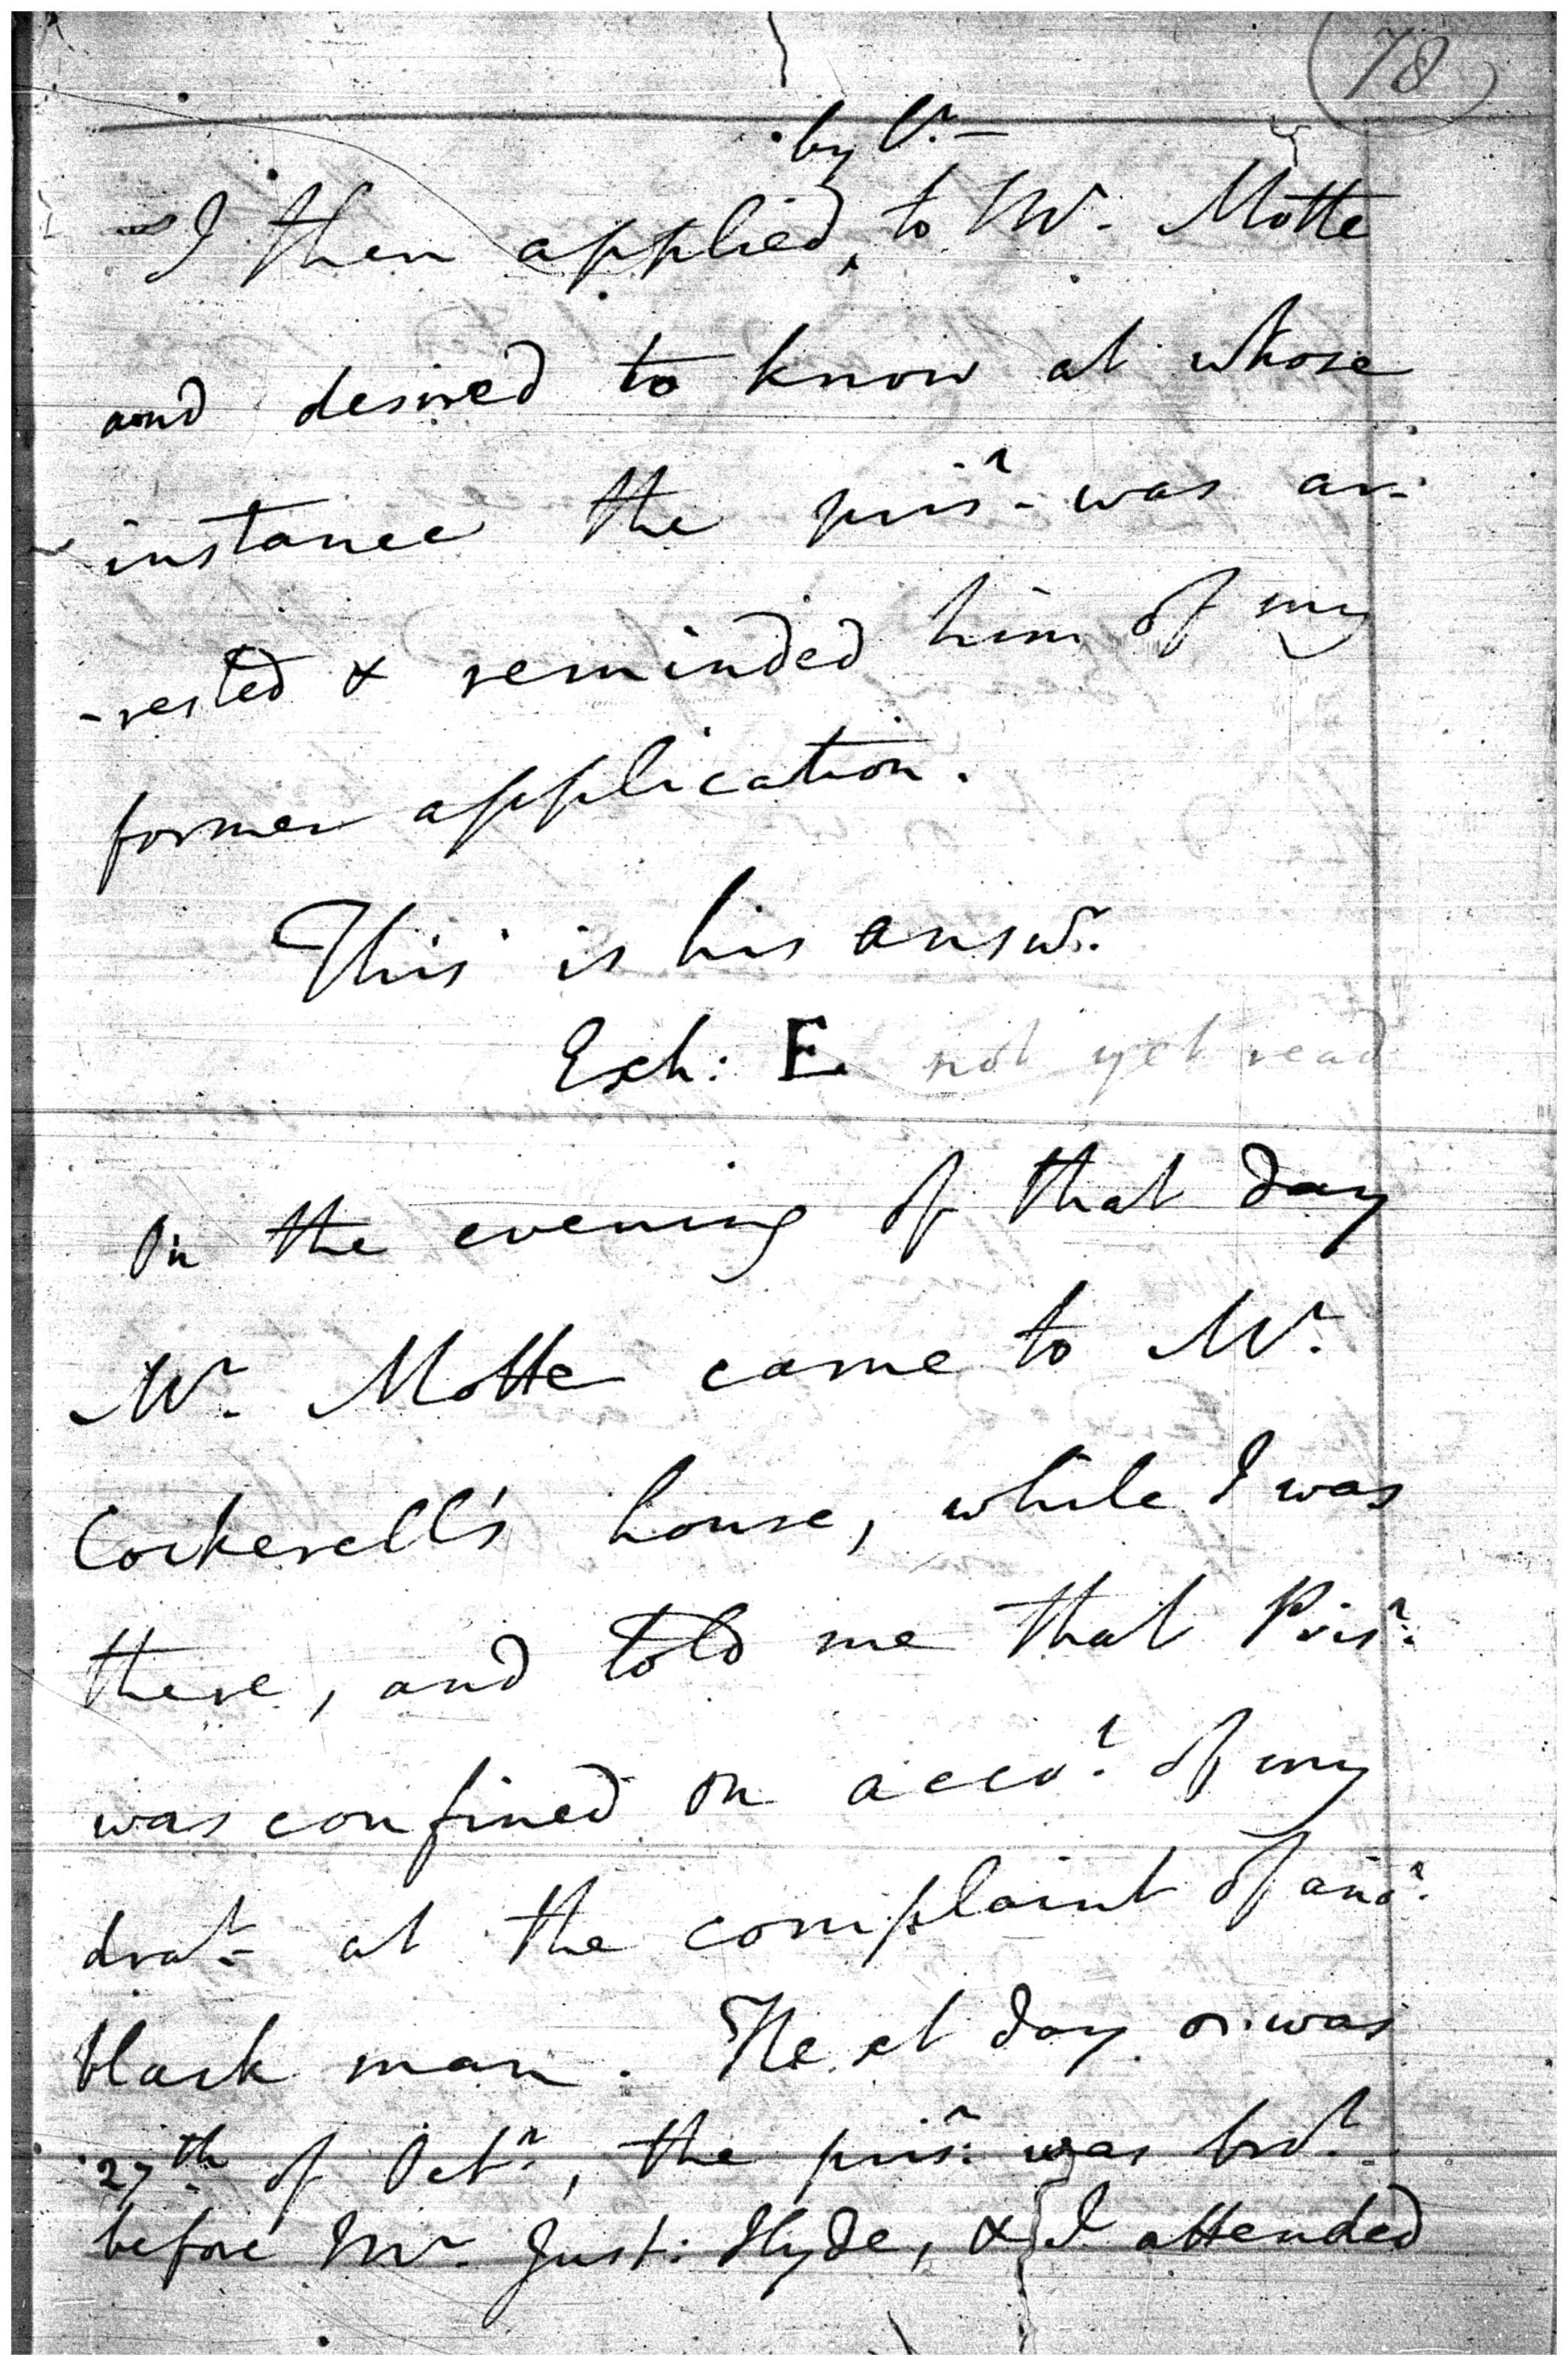 78
by lr. -
I then applied, to Mr. Motte
and desired to know at whose
instance the prisr. was ar-
-rested & reminded him of my
former application.
This is his answr.
Exh: E. not yet read
On the evening of that day
Mr. Motte came to Mr.
Cockerell's house, while I was
there, and told me that Prisr.
was confined on accot. of my
drat. at the complaint of anor.
black man. Next day or was
27th. of Octr., the prisr. was brot.
before Mr. Just: Hyde, & I attended